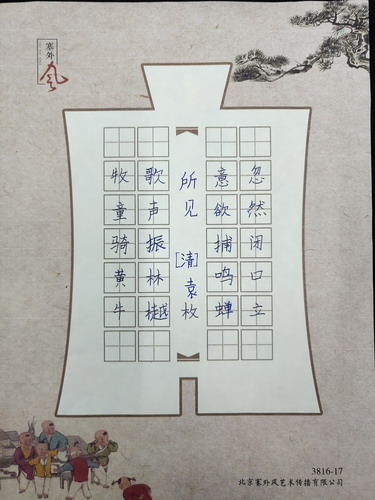 塞外
风
牧童骑黄牛
歌声振林樾
所见 [清] 袁枚
意欲捕鸣蝉
忽然闭口立
3816-17
北京塞外风艺术传播有限公司